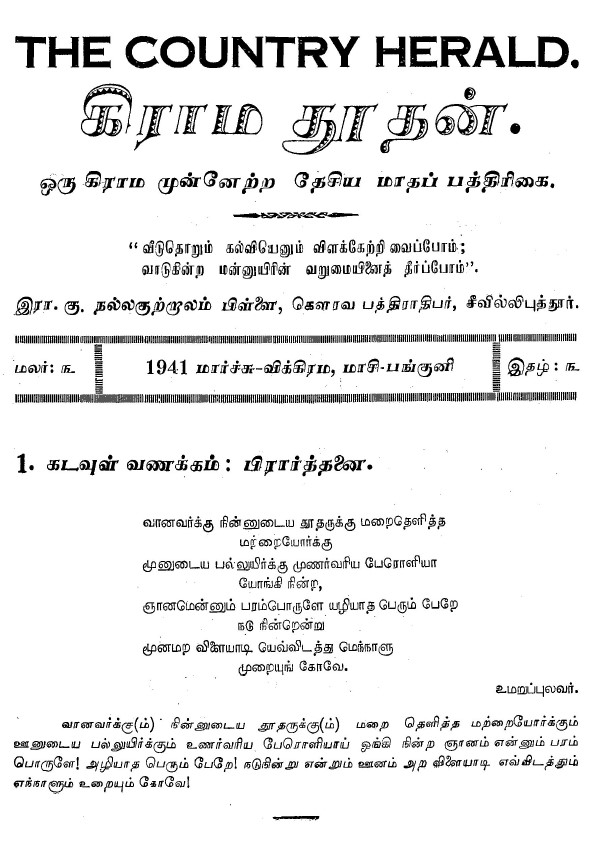 THE COUNTRY HERALD.
கிராம தூதன்.
ஒரு கிராம முன்னேற்ற தேசிய மாதப் பத்திரிகை.
“வீடுதொறும் கல்வியெனும் விளக்கேற்றி வைப்போம்;
வாடுகின்ற மன்னுயிரின் வறுமையினைத் தீர்ப்போம்”.
இரா. கு. நல்லகுற்றாலம் பிள்ளை, கௌரவ பத்திராதிபர், சீவில்லிபுத்தூர்.
மலர்: ௩ 1941 மார்ச்சு-விக்கிரம, மாசி-பங்குனி இதழ்: ௩
1. கடவுள் வணக்கம்: பிரார்த்தனை.
வானவர்க்கு நின்னுடைய தூதருக்கு மறைதெளித்த
மற்றையோர்க்கு
மூனுடைய பல்லுயிர்க்கு முணர்வரிய பேரொளியா
யோங்கி நின்ற,
ஞானமென்னும் பரம்பொருளே யழியாத பெரும் பேறே
நடு நின்றென்று
மூனமற விளையாடி யெவ்விடத்து மெந்நாளு
முறையுங் கோவே.
உமறுப்புலவர்.
வானவர்க்கு(ம்) நின்னுடைய தூதருக்கு(ம்) மறை தெளித்த மற்றையோர்க்கும்
ஊனுடைய பல்லுயிர்க்கும் உணர்வரிய பேரொளியாய் ஓங்கி நின்ற ஞானம் என்னும் பரம்
பொருளே! அழியாத பெரும் பேறே! நடுநின்று என்றும் ஊனம் அற விளையாடி எவ்விடத்தும்
எந்நாளும் உறையும் கோவே!